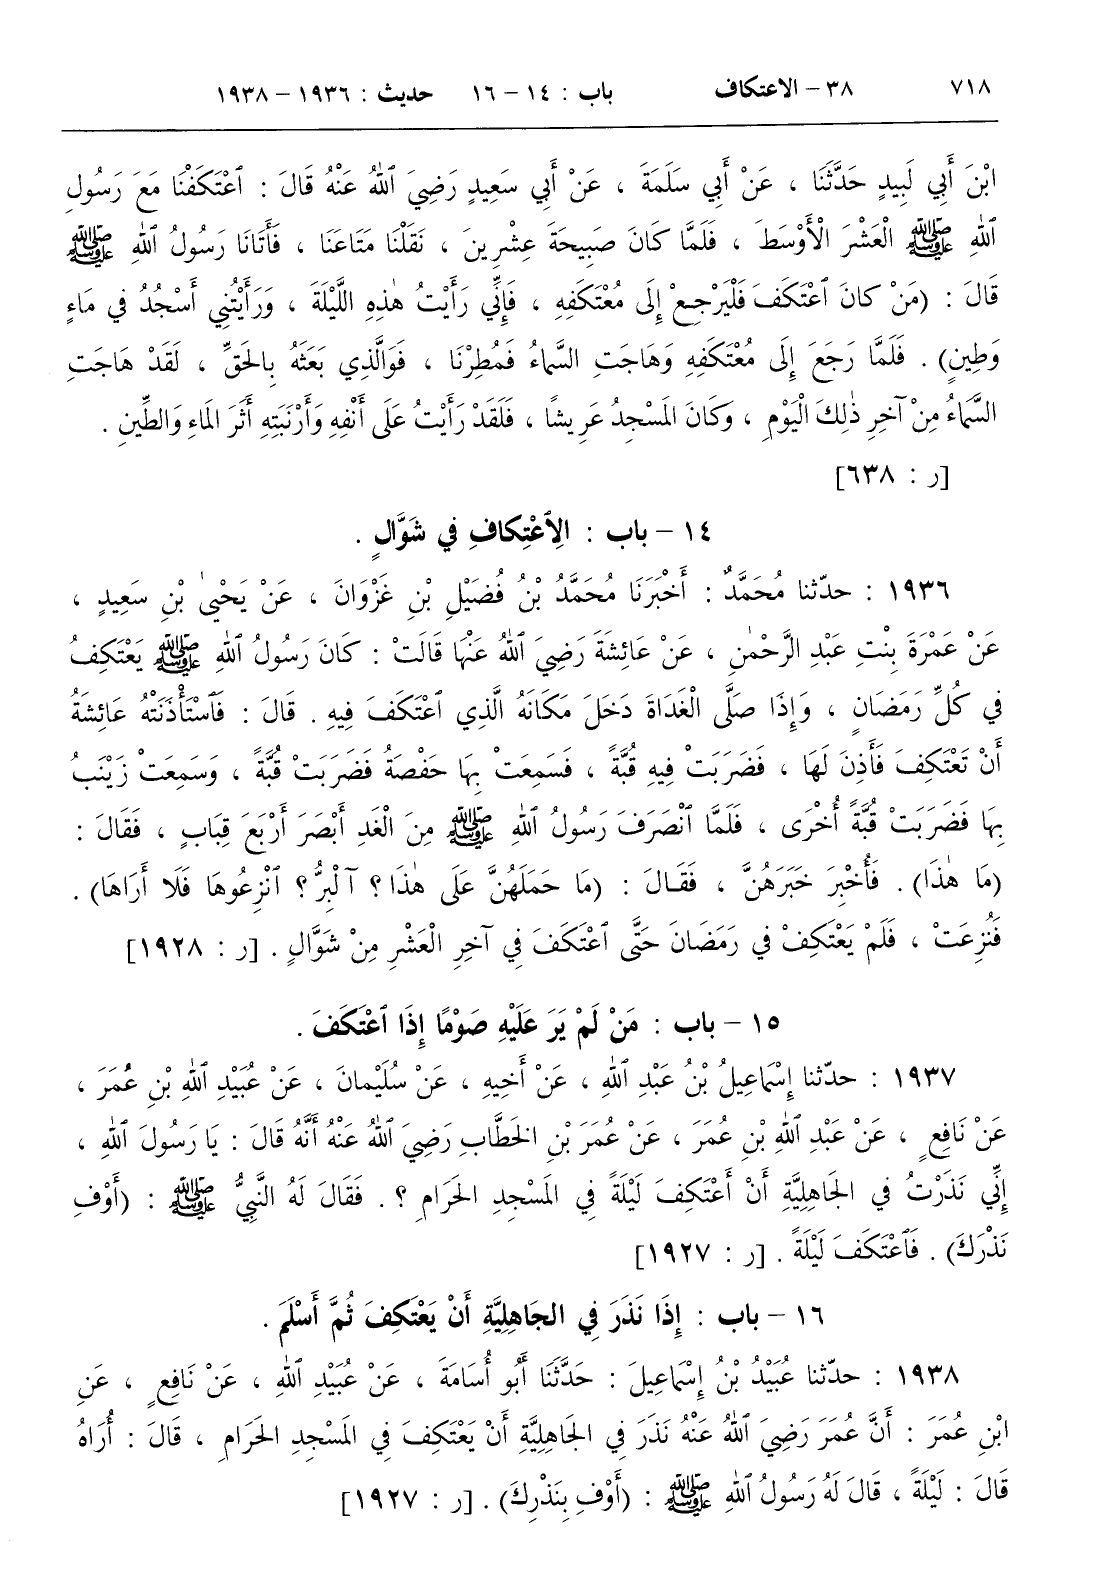 ٧١٨ ٣٨ – الاعتكاف باب : ١٤ – ١٦ حديث : ١٩٣٦ – ١٩٣٨
ابْنَ أَبِي لَبِيدٍ حَدَّثَنَا ، عَنْ أَبِي سَلَمَةَ ، عَنْ أَبِي سَعِيدٍ رَضِيَ ٱللهُ عَنْهُ قَالَ : ٱعْتَكَفْنَا مَعَ رَسُولِ
ٱللهِ ﷺ الْعَشْرَ الْأَوْسَطَ ، فَلَمَّا كانَ صَبِيحَةَ عِشْرِينَ ، نَقَلْنَا مَتَاعَنَا ، فَأَتَانَا رَسُولُ ٱللهِ ﷺ
قَالَ : (مَنْ كانَ ٱعْتَكَفَ فَلْيَرْجِعْ إِلَى مُعْتَكَفِهِ ، فَإِنِّي رَأَيْتُ هٰذِهِ اللَّيْلَةَ ، وَرَأَيْتُنِي أَسْجُدُ فِي مَاءٍ
وَطِينٍ) . فَلَمَّا رَجَعَ إِلَى مُعْتَكَفِهِ وَهَاجَتِ السَّمَاءُ فَمُطِرْنَا ، فَوَالَّذِي بَعَثَهُ بِالحَقِّ ، لَقَدْ هَاجَتِ
السَّمَاءُ مِنْ آخِرِ ذٰلِكَ الْيَوْمِ ، وَكانَ المَسْجِدُ عَرِيشًا ، فَلَقَدْ رَأَيْتُ عَلَى أَنْفِهِ وَأَرْنَبَتِهِ أَثَرَ المَاءِ وَالطِّينِ .
[ر : ٦٣٨]
١٤ – باب : الِٱعْتِكافِ فِي شَوَّالٍ .
١٩٣٦ : حدّثنا مُحَمَّدٌ : أَخْبَرَنَا مُحَمَّدُ بْنُ فُضَيْلِ بْنِ غَزْوَانَ ، عَنْ يَحْيىٰ بْنِ سَعِيدٍ ،
عَنْ عَمْرَةَ بِنْتِ عَبْدِ الرَّحْمٰنِ ، عَنْ عَائِشَةَ رَضِيَ ٱللهُ عَنْهَا قَالَتْ : كانَ رَسُولُ ٱللهِ ﷺ يَعْتَكِفُ
فِي كُلِّ رَمَضَانٍ ، وَإِذَا صَلَّى الْغَدَاةَ دَخَلَ مَكَانَهُ الَّذِي ٱعْتَكَفَ فِيهِ . قَالَ : فَٱسْتَأْذَنَتْهُ عَائِشَةُ
أَنْ تَعْتَكِفَ فَأَذِنَ لَهَا ، فَضَرَبَتْ فِيهِ قُبَّةً ، فَسَمِعَتْ بِهَا حَفْصَةُ فَضَرَبَتْ قُبَّةً ، وَسَمِعَتْ زَيْنَبُ
بِهَا فَضَرَبَتْ قُبَّةً أُخْرَى ، فَلَمَّا ٱنْصَرَفَ رَسُولُ ٱللهِ ﷺ مِنَ الْغَدِ أَبْصَرَ أَرْبَعَ قِبَابٍ ، فَقَالَ :
(مَا هٰذَا) . فَأُخْبِرَ خَبَرَهُنَّ ، فَقَالَ : (مَا حَمَلَهُنَّ عَلَى هٰذَا ؟ آلْبِرُّ ؟ ٱنْزِعُوهَا فَلَا أَرَاهَا) .
فَنُزِعَتْ ، فَلَمْ يَعْتَكِفْ فِي رَمَضَانَ حَتَّى ٱعْتَكَفَ فِي آخِرِ الْعَشْرِ مِنْ شَوَّالٍ . [ر : ١٩٢٨]
١٥ – باب : مَنْ لَمْ يَرَ عَلَيْهِ صَوْمًا إِذَا ٱعْتَكَفَ .
١٩٣٧ : حدّثنا إِسْمَاعِيلُ بْنُ عَبْدِ ٱللهِ ، عَنْ أَخِيهِ ، عَنْ سُلَيْمَانَ ، عَنْ عُبَيْدِ ٱللهِ بْنِ عُمَرَ ،
عَنْ نَافِعٍ ، عَنْ عَبْدِ ٱللهِ بْنِ عُمَرَ ، عَنْ عُمَرَ بْنِ الخَطَّابِ رَضِيَ ٱللهُ عَنْهُ أَنَّهُ قَالَ : يَا رَسُولَ ٱللهِ ،
إِنِّي نَذَرْتُ فِي الجَاهِلِيَّةِ أَنْ أَعْتَكِفَ لَيْلَةً فِي المَسْجِدِ الحَرَامِ ؟ . فَقَالَ لَهُ النَّبِيُّ ﷺ : (أَوْفِ
نَذْرَكَ) . فَٱعْتَكَفَ لَيْلَةً . [ر : ١٩٢٧]
١٦ – باب : إِذَا نَذَرَ فِي الجَاهِلِيَّةِ أَنْ يَعْتَكِفَ ثُمَّ أَسْلَمَ .
١٩٣٨ : حدّثنا عُبَيْدُ بْنُ إِسْمَاعِيلَ : حَدَّثَنَا أَبُو أُسَامَةَ ، عَنْ عُبَيْدِ ٱللهِ ، عَنْ نَافِعٍ ، عَنِ
ابْنِ عُمَرَ : أَنَّ عُمَرَ رَضِيَ ٱللهُ عَنْهُ نَذَرَ فِي الجَاهِلِيَّةِ أَنْ يَعْتَكِفَ فِي المَسْجِدِ الحَرَامِ ، قَالَ : أُرَاهُ
قَالَ : لَيْلَةً ، قَالَ لَهُ رَسُولُ ٱللهِ ﷺ : (أَوْفِ بِنَذْرِكَ) . [ر : ١٩٢٧]